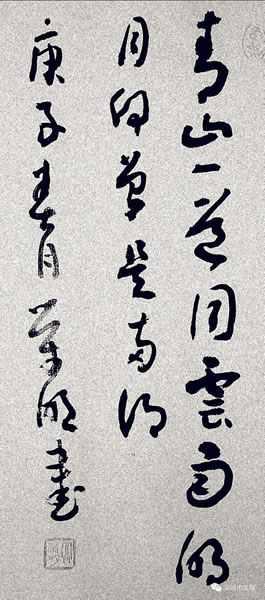 青山一道同雲雨明
月何曾是兩鄉
庚子春月明書